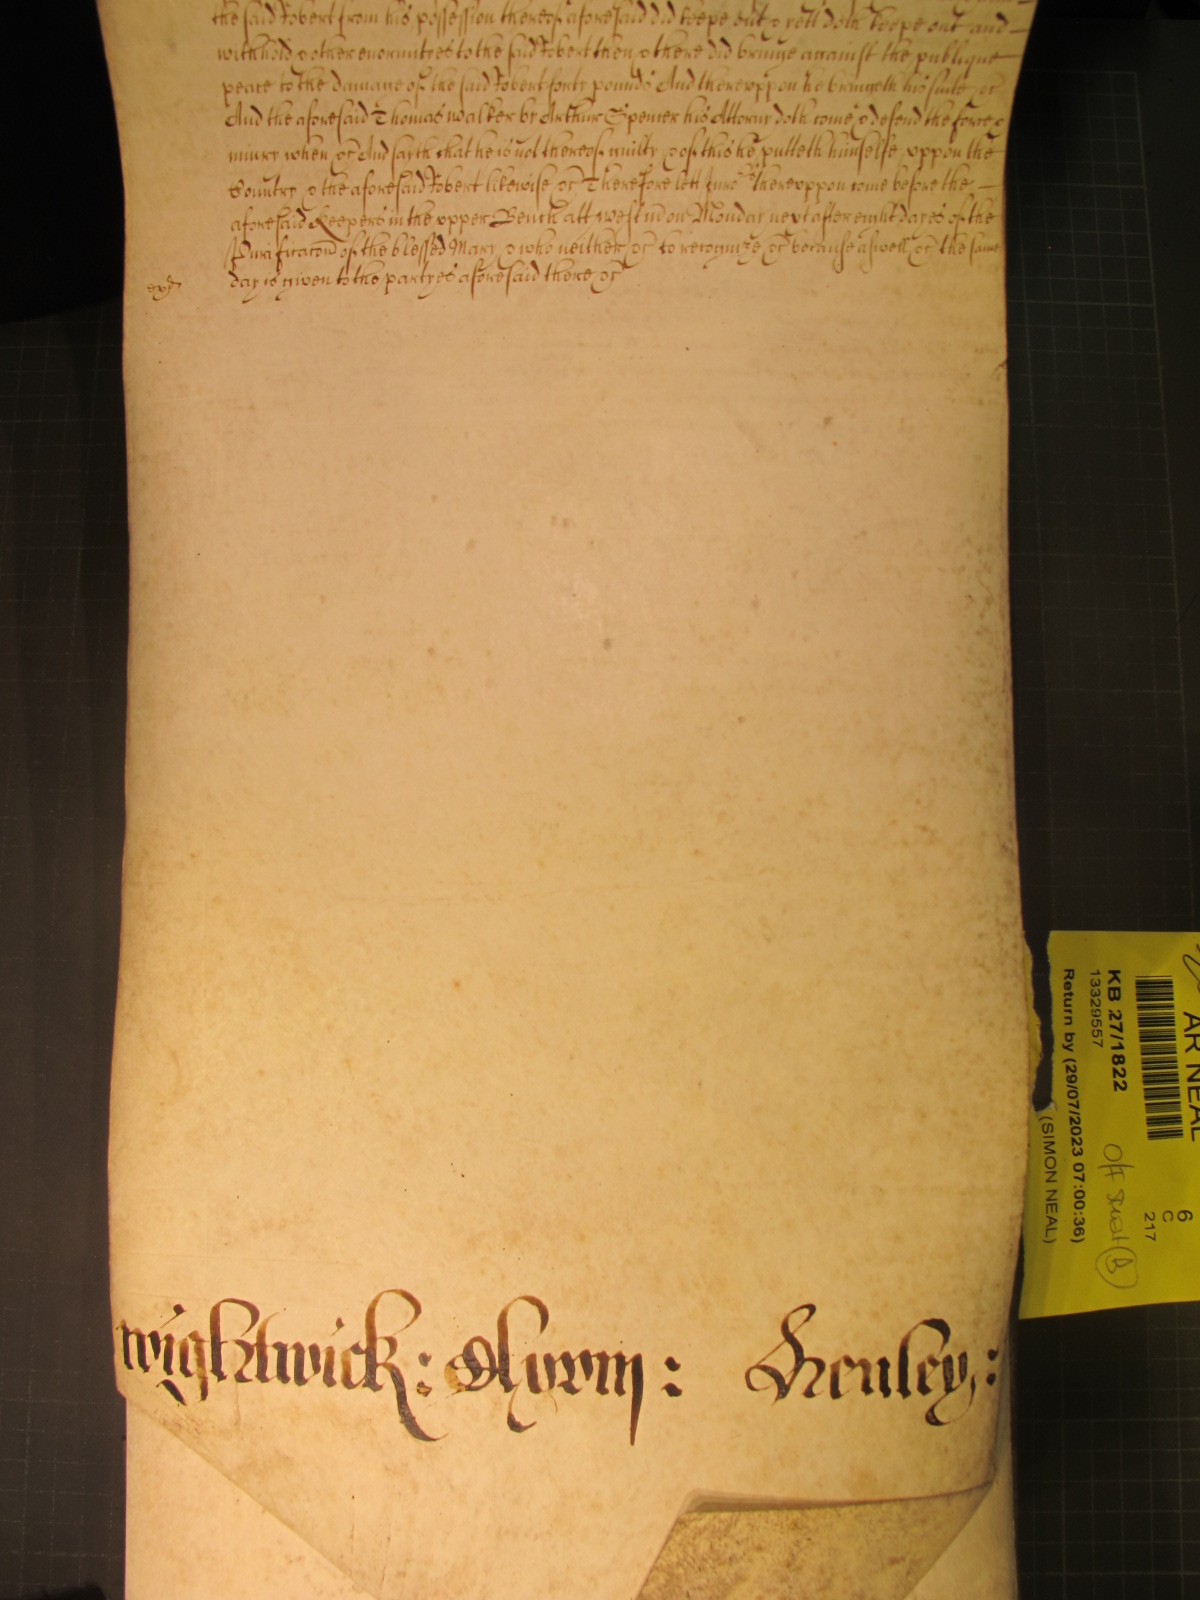 the said Robert from his possession thereof aforesaid did keepe out & yett doth keepe out and
withhold & other enormityes to the said Robert then & there did bringe against the publique
peace to the damage of the said Robert forty pounds And thereuppon he bringeth his suite &c
And the aforesaid Thomas Walker by Arthur Spenser his Attorny doth come & defend the force &
iniury when &c And sayth that he is not thereof guilty & of this he putteth himselfe uppon the
Country & the aforesaid Robert likewise &c Therefore lett Jury thereuppon come before the
aforesaid Keepers in the upper Bench att westm on Monday next after eight dayes of the
Purificacon of the blessed Mary & who neither &c to recognize &c because aswell &c the same
day is given to the partyes aforesaid there &c
wightwick: Henley:
AR NEAL
KB 27/1822
13329557
Return by (29/07/2023 07:00:36)
(SIMON NEAL)
6
C
217